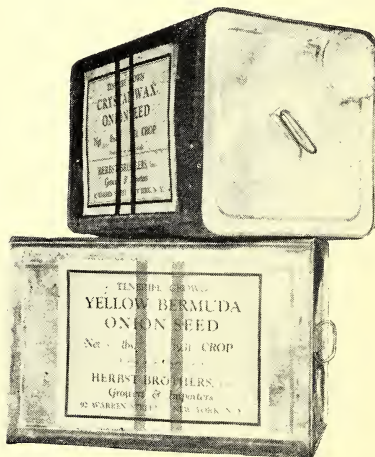 TENERIFE GROWN
CRYSTAL WAX
ONION SEED
Net lbs. CROP
HERBST BROTHERS, Inc.
Growers & Importers
92 WARREN STREET NEW YORK, N. Y.
TENERIFE GROWN
YELLOW BERMUDA
ONION SEED
Net lbs. CROP
HERBST BROTHERS, Inc.
Growers & Importers
92 WARREN STREET NEW YORK, N. Y.